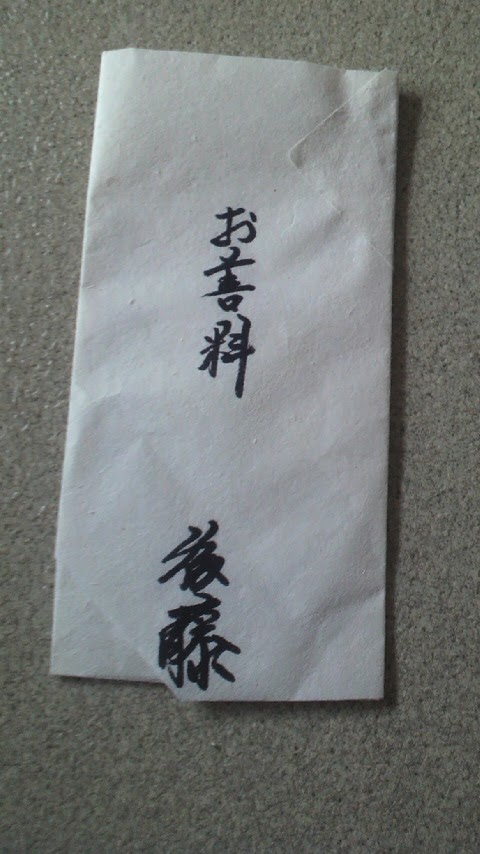 お善料
後藤